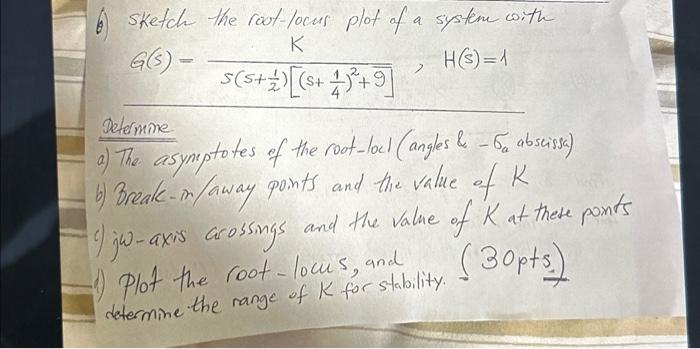 6) Sketch the root-locus plot of a system with
G(s) = K / s(s+1/2)[(s+1/4)²+9] , H(s)=1
Determine
a) The asymptotes of the root-loci (angles & -σa abscissa)
b) Break-in/away points and the value of K
c) jω-axis crossings and the value of K at these points
d) Plot the root-locus, and (30pts)
determine the range of K for stability.